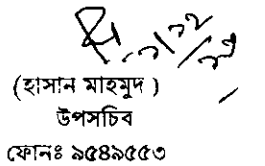 (হাসান মাহমুদ )
উপসচিব
ফোনঃ ৯৫৪৯৫৫৩